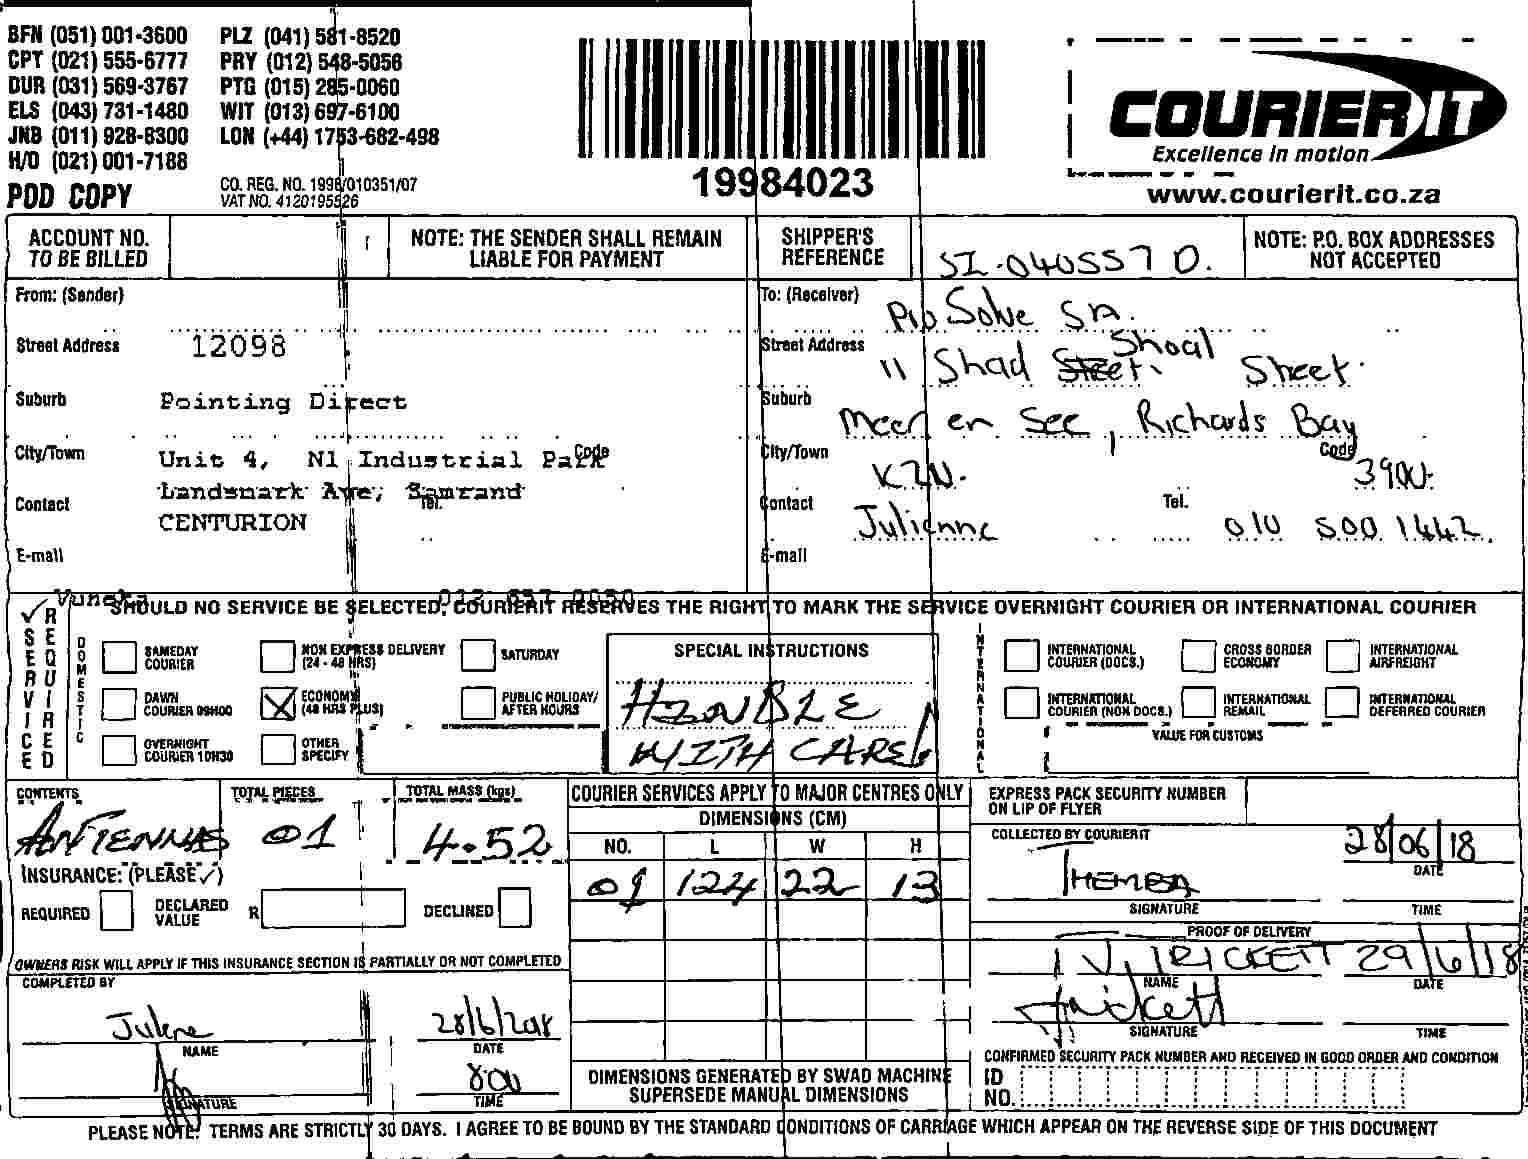 BFN (051) 001-3600 PLZ (041) 581-8520
CPT (021) 555-6777 PRY (012) 548-5056
DUR (031) 569-3767 PTG (015) 285-0060
ELS (043) 731-1480 WIT (013) 697-6100
JNB (011) 928-8300 LON (+44) 1753-682-498
H/O (021) 001-7188
POD COPY
CO. REG. NO. 1998/010351/07
VAT NO. 4120195526
19984023
COURIERIT
Excellence in motion
www.courierit.co.za
ACCOUNT NO. TO BE BILLED
NOTE: THE SENDER SHALL REMAIN LIABLE FOR PAYMENT
SHIPPER'S REFERENCE
SI-0405570.
NOTE: P.O. BOX ADDRESSES NOT ACCEPTED
From: (Sender)
Street Address 12098
Suburb Pointing Direct
City/Town Unit 4, N1 Industrial Park Code
Landsmark Ave, Samrand
Contact Tel.
CENTURION
E-mail
To: (Receiver) Pro Solve SA.
Street Address 11 Shad Street. Shoal Street.
Suburb Meer en See, Richards Bay
City/Town KZN. Code 3900.
Contact Julienne Tel. 010 500 1442.
E-mail
SERVICE REQUIRED
SHOULD NO SERVICE BE SELECTED, COURIERIT RESERVES THE RIGHT TO MARK THE SERVICE OVERNIGHT COURIER OR INTERNATIONAL COURIER
DOMESTIC
SAMEDAY COURIER
NON EXPRESS DELIVERY (24 - 48 HRS)
SATURDAY
DAWN COURIER 09H00
ECONOMY (48 HRS PLUS)
PUBLIC HOLIDAY/ AFTER HOURS
OVERNIGHT COURIER 10H30
OTHER SPECIFY
SPECIAL INSTRUCTIONS
HANDLE
WITH CARE!
INTERNATIONAL
INTERNATIONAL COURIER (DOCS.)
CROSS BORDER ECONOMY
INTERNATIONAL AIRFREIGHT
INTERNATIONAL COURIER (NON DOCS.)
INTERNATIONAL REMAIL
INTERNATIONAL DEFERRED COURIER
VALUE FOR CUSTOMS
CONTENTS TOTAL PIECES TOTAL MASS (kgs)
ANTENNAS 01 4.52
INSURANCE: (PLEASE ✓)
REQUIRED DECLARED VALUE R DECLINED
OWNERS RISK WILL APPLY IF THIS INSURANCE SECTION IS PARTIALLY OR NOT COMPLETED
COMPLETED BY
Julene 28/6/2018
NAME DATE
800
SIGNATURE TIME
COURIER SERVICES APPLY TO MAJOR CENTRES ONLY
DIMENSIONS (CM)
NO. L W H
01 124 22 13
DIMENSIONS GENERATED BY SWAD MACHINE SUPERSEDE MANUAL DIMENSIONS
EXPRESS PACK SECURITY NUMBER ON LIP OF FLYER
COLLECTED BY COURIERIT
28/06/18
DATE
THEMBA
SIGNATURE TIME
PROOF OF DELIVERY
J TRICKETT 29/6/18
NAME DATE
JTrickett
SIGNATURE TIME
CONFIRMED SECURITY PACK NUMBER AND RECEIVED IN GOOD ORDER AND CONDITION
ID NO.
PLEASE NOTE: TERMS ARE STRICTLY 30 DAYS. I AGREE TO BE BOUND BY THE STANDARD CONDITIONS OF CARRIAGE WHICH APPEAR ON THE REVERSE SIDE OF THIS DOCUMENT